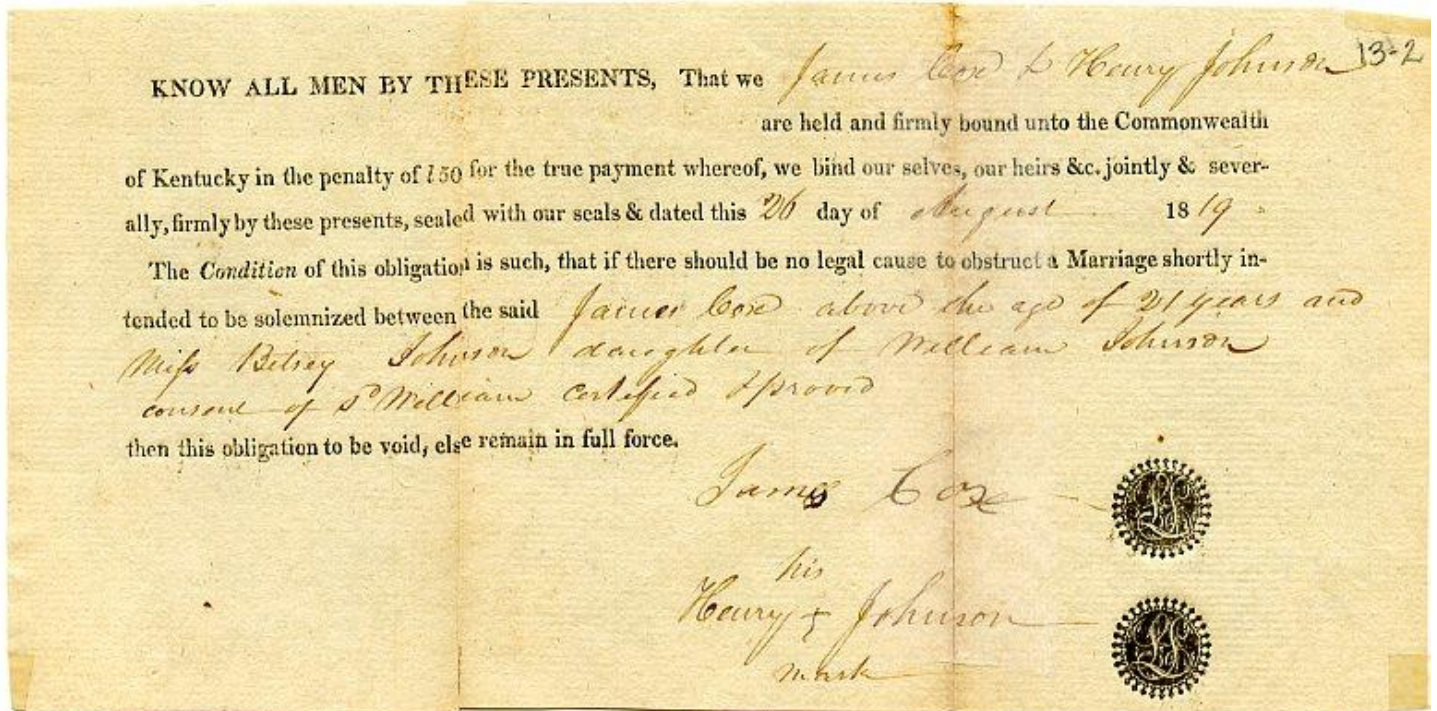 13-2
KNOW ALL MEN BY THESE PRESENTS, That we James Cox & Henry Johnson
are held and firmly bound unto the Commonwealth
of Kentucky in the penalty of £50 for the true payment whereof, we bind our selves, our heirs &c. jointly & sever-
ally, firmly by these presents, sealed with our seals & dated this 26 day of August 1819
The Condition of this obligation is such, that if there should be no legal cause to obstruct a Marriage shortly in-
tended to be solemnized between the said James Cox above the age of 21 years and
Miss Betsey Johnson daughter of William Johnson
consent of sd William certified & proved
then this obligation to be void, else remain in full force.
James Cox
his
Henry + Johnson
mark
LS
LS